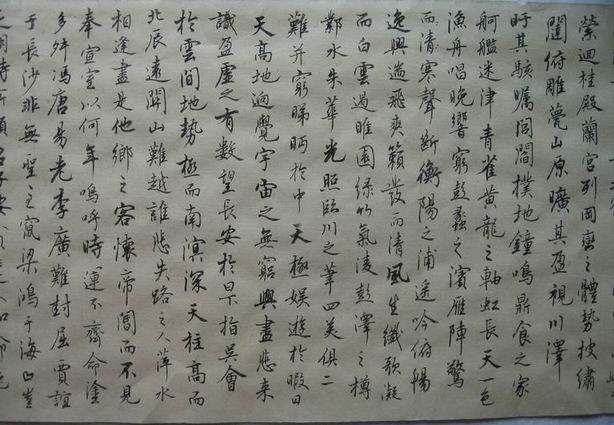 縈迴桂殿蘭宮列岡巒之體勢披繡
闥俯雕甍山原曠其盈視川澤
盱其駭矚閭閻撲地鐘鳴鼎食之家
舸艦迷津青雀黃龍之軸虹長天一色
漁舟唱晚響窮彭蠡之濱雁陣驚
而清寒聲斷衡陽之浦遥吟俯暢
逸興遄飛爽籟發而清風生纖歌凝
而白雲遏睢園綠竹氣凌彭澤之樽
鄴水朱華光照臨川之筆四美俱二
難并窮睇眄於中天極娛遊於暇日
天高地迥覺宇宙之無窮興盡悲来
識盈虛之有數望長安於日下指吳會
於雲間地勢極而南溟深天柱高而
北辰遠關山難越誰悲失路之人萍水
相逢盡是他鄉之客懷帝閽而不見
奉宣室以何年嗚呼時運不齊命塗
多舛馮唐易老李廣難封屈賈誼
于長沙非無聖主竄梁鴻于海曲豈